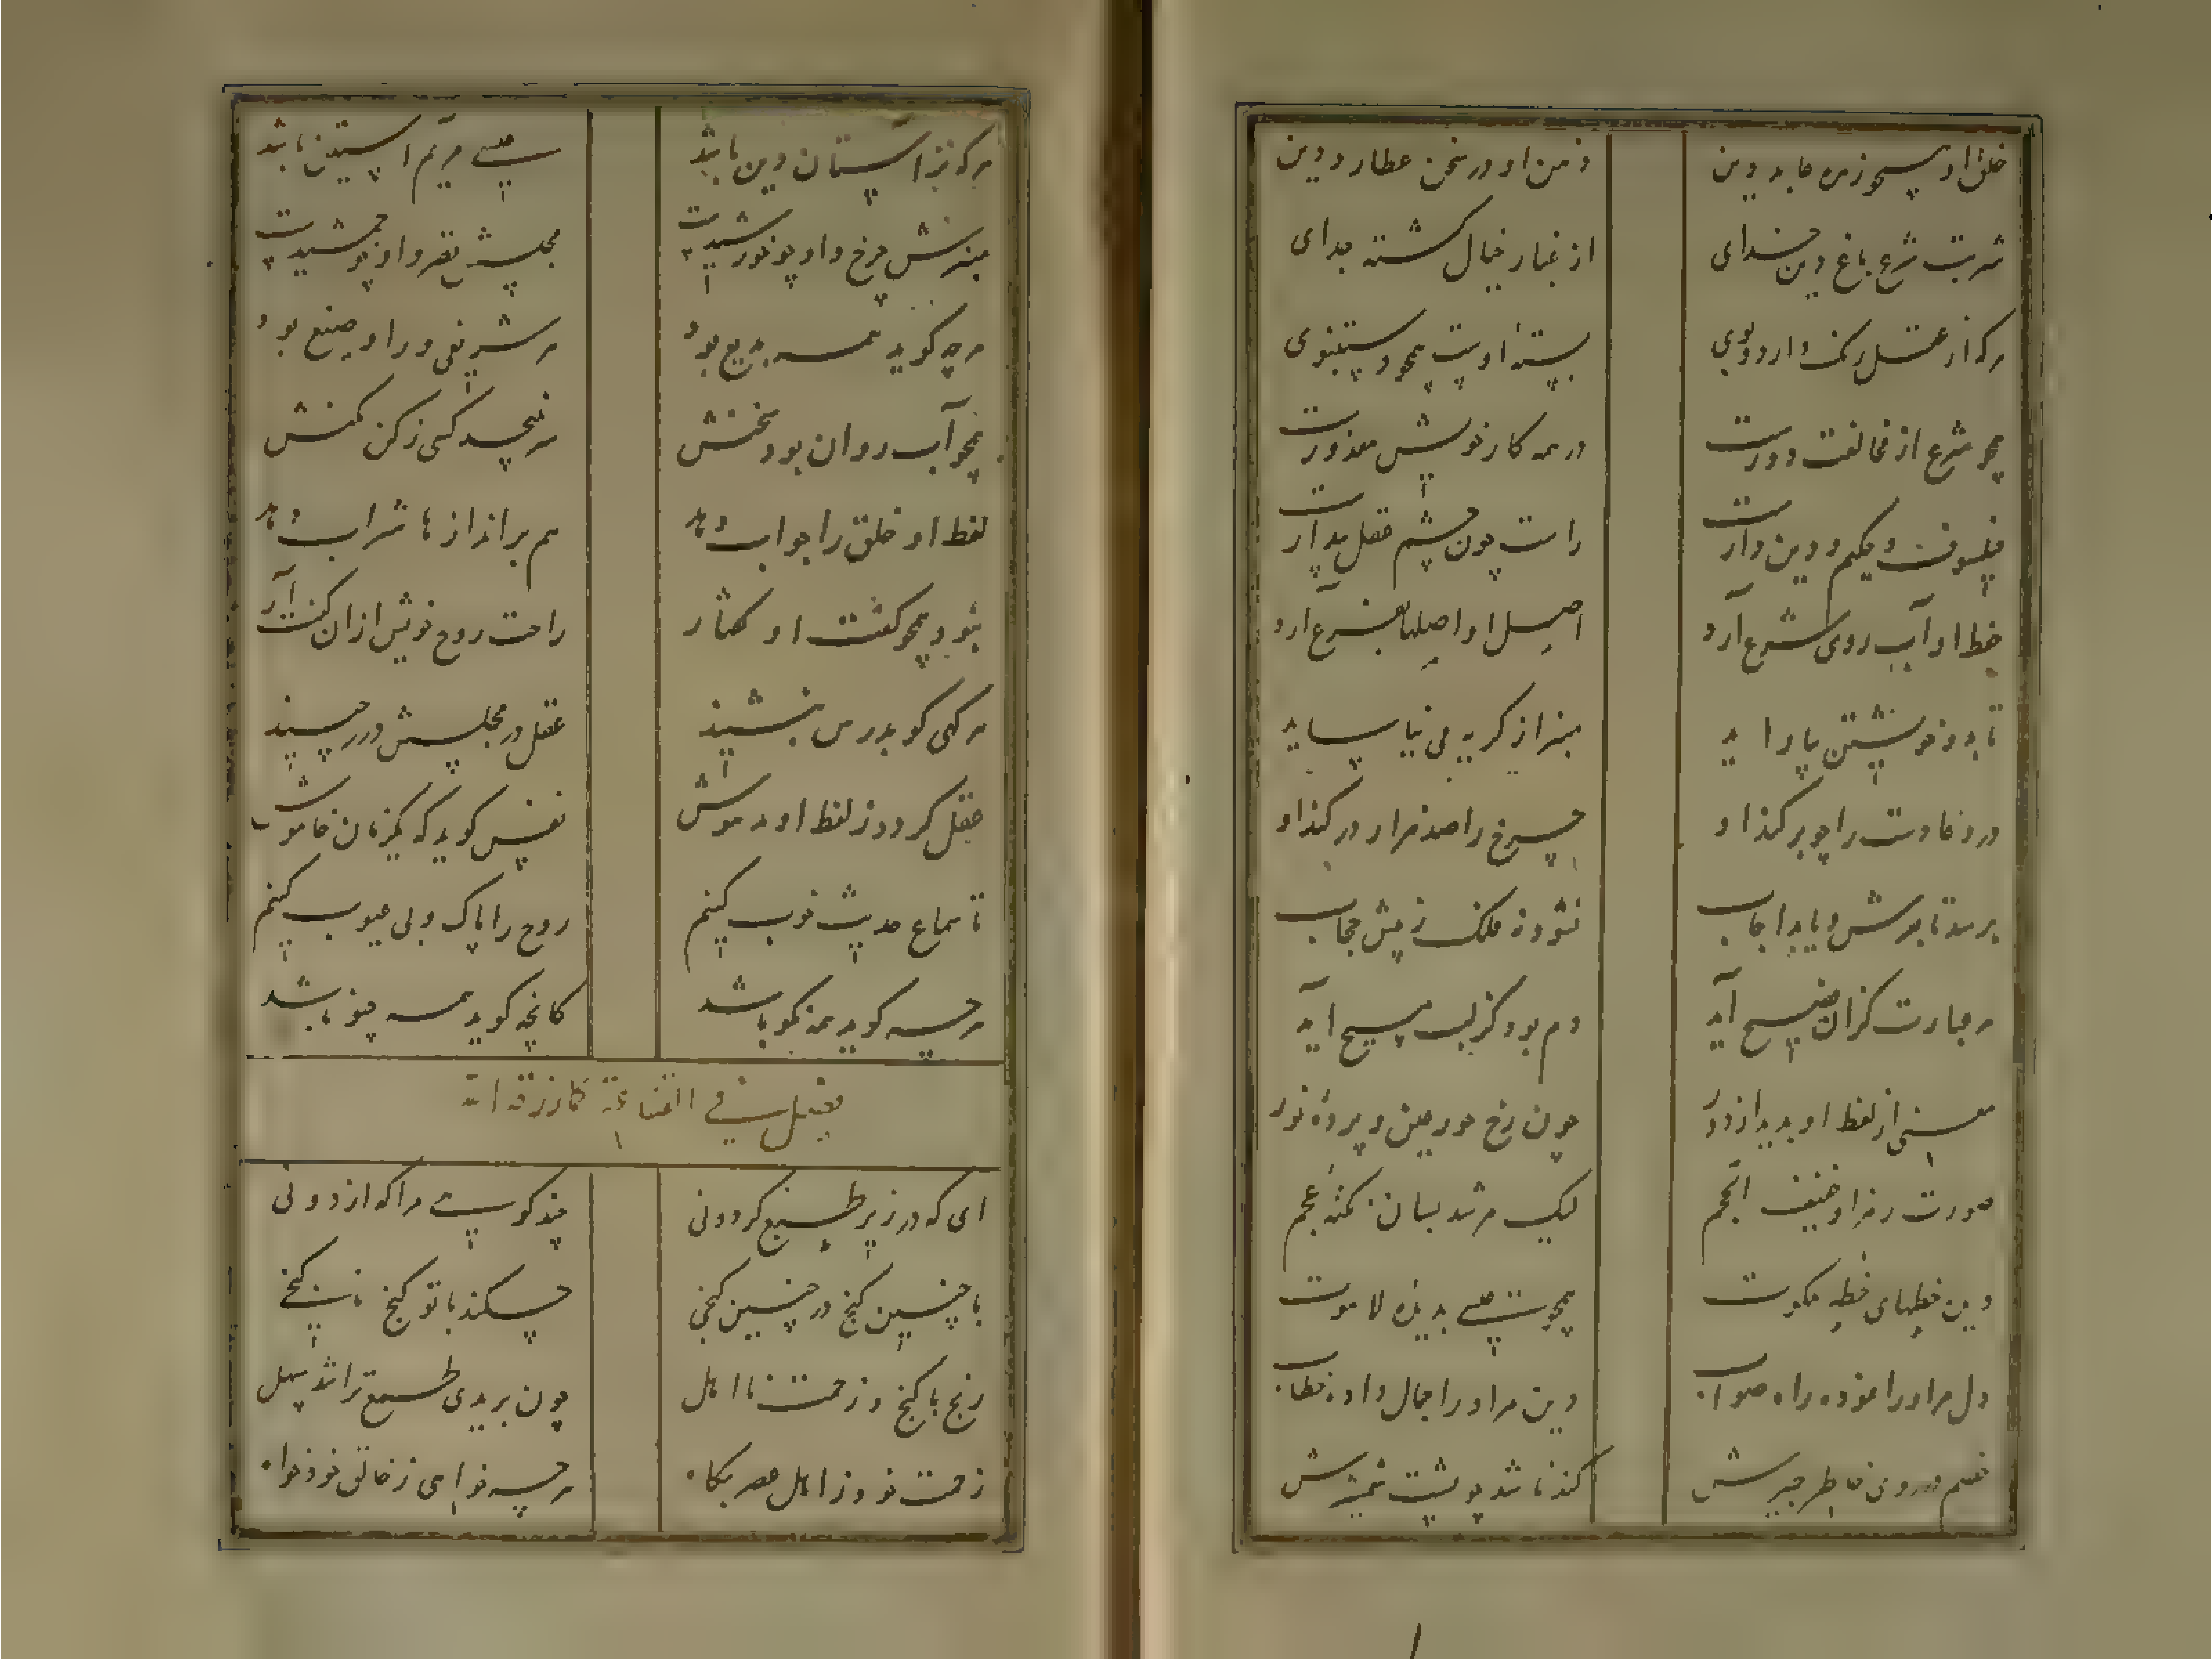 خلق او همچو زهره عابد دین ذهن او در سخن عطارد دین
شربت شرع باغ دین خدای از غبار خیال گشته جدای
هرکه از عقل رنگ دارد و بوی بسته اوست همچو دستنبوی
همچو شرع از مخالفت دورست در همه کار خویش معذورست
فیلسوفت و حکیم و دین دارست راست چون چشم عقل بیدارست
خط او آب روی شرع آرد اصل او اصلها بفرع آرد
تا بدو خویشتن بیاراید منبر از گریه می نیاساید
در دعا دست را چو برکند او چرخ را صد هزار در کند او
بر سد تا بعرش و یابد اجاب نشود فلک ز پیش حجاب
هر عبارت کزان فصیح آید دم بود کز لب مسیح آید
معنی از لفظ او بدید از دور چون رخ حور عین و پرده نور
صورت رمز او خفیف انجم لیک مرشد بسان نکته عجم
دین خطهای خطه ملکوت همچوت عیسی بدیده لاهوت
دل مر او را نموده راه صواب دین مر او را جمال داده خطاب
فهم در روی خاطر خیرش کند باشد چو پشت شمشیرش
هرکه نز آستان دین باشد عیسی مریم آستین باشد
منبرش چرخ و او چو خورشیدست مجلسش تخت و او چو جمشیدست
هرچه گوید همه بدیع بود هر شریفی ورا وضیع بود
همچو آب روان بود سخنش هر نپیچد کسی ز کن مکنش
لفظ او خلق را جواب دهد هم بر اندازها شراب دهد
بشنود همچو گفت او گفتار راحت روح خویش ازان گفتار
هر کسی کو بدرس بنشیند عقل در مجلسش درر چیند
عقل گردد ز لفظ او مدهوش نفس گوید که یک زمان خاموش
تا سماع حدیث خوب کنیم روح را پاک و بی عیوب کنیم
هرچه گوید همه نکو باشد کانچه گوید همه چنو باشد
فصل فی القناعة کما رزقه الله
ای که در زیر طبع گردونی چند گویی مرا که از دونی
با چنین گنج در چنین کنجی چکند با تو گنج نارنجی
رنج با گنج و زحمت نا اهل چون بریدی طمع ترا شد سهل
زحمت خود ز اهل عصر بکاه هرچه خواهی ز خالق خود خواه